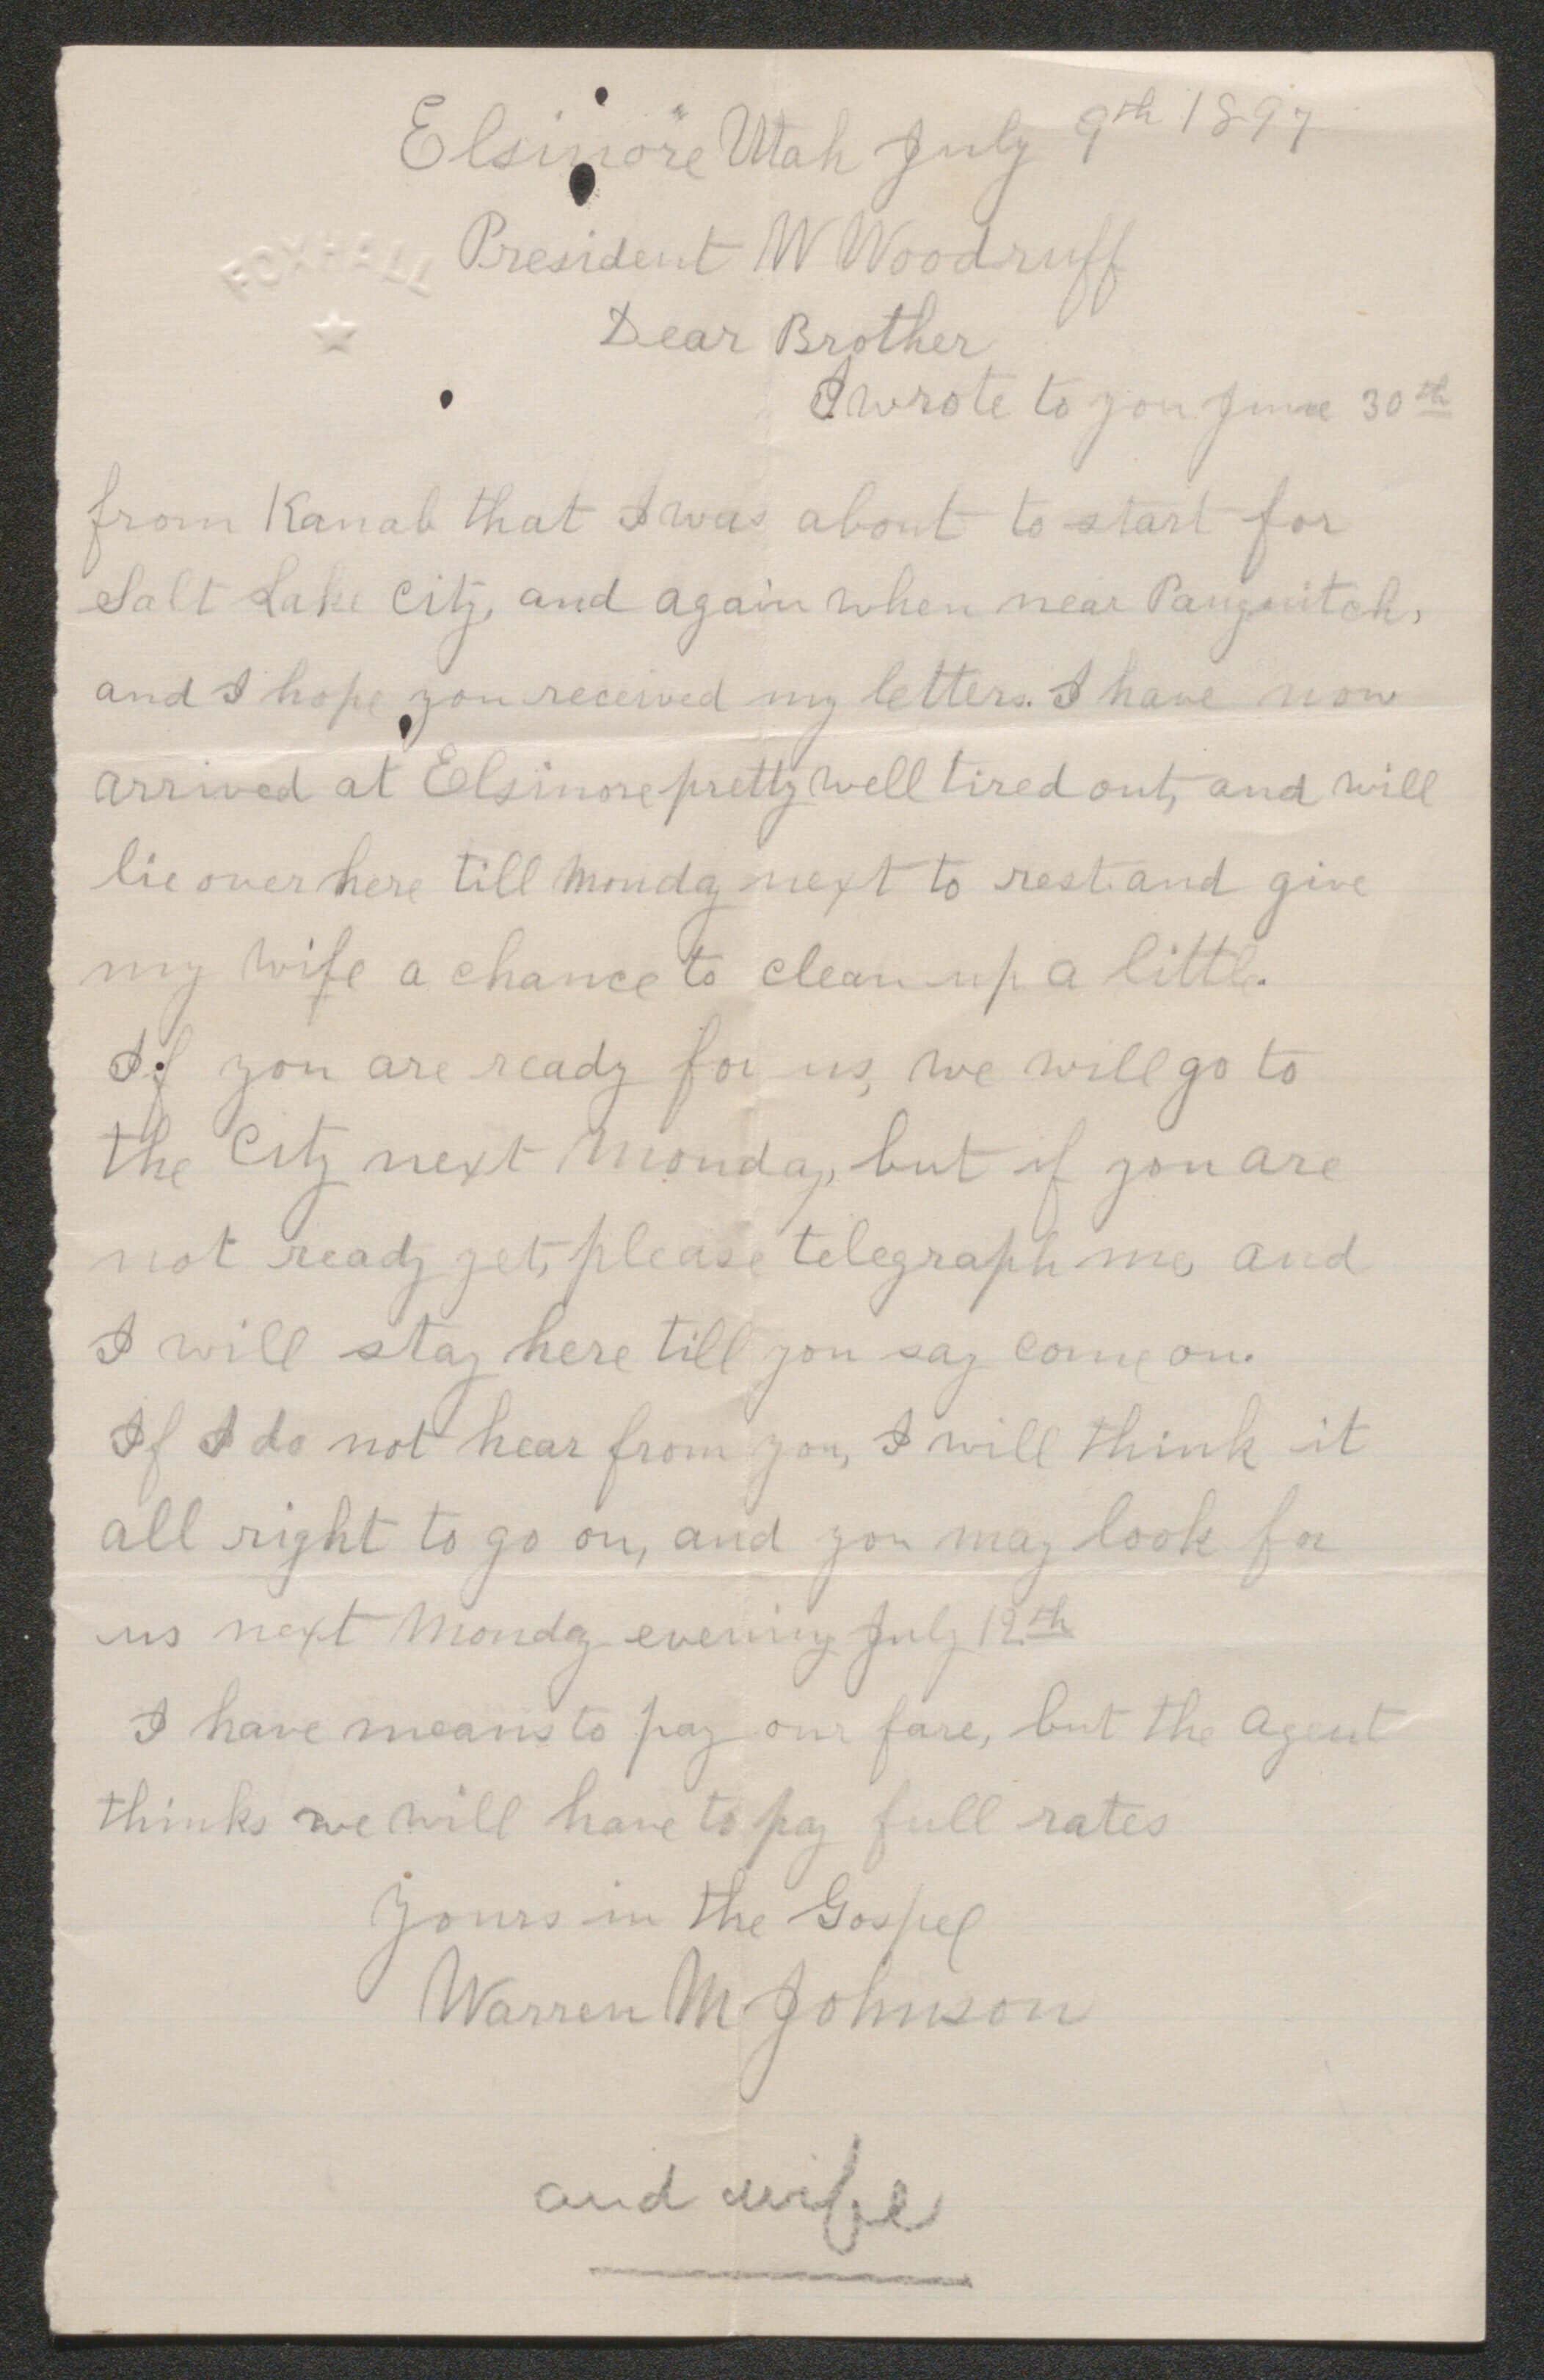 Elsinore Utah July 9th 1897
FOXHALL
President W Woodruff
Dear Brother
I wrote to you June 30th
from Kanab that I was about to start for
Salt Lake City, and again when near Panguitch,
and I hope you received my letters. I have now
arrived at Elsinore pretty well tired out, and will
lie over here till Monday next to rest and give
my wife a chance to clean up a little.
If you are ready for us, we will go to
the City next Monday, but if you are
not ready yet, please telegraph me, and
I will stay here till you say come on.
If I do not hear from you, I will think it
all right to go on, and you may look for
us next Monday evening July 12th
I have means to pay our fare, but the agent
thinks we will have to pay full rates
Yours in the Gospel
Warren M Johnson
and wife